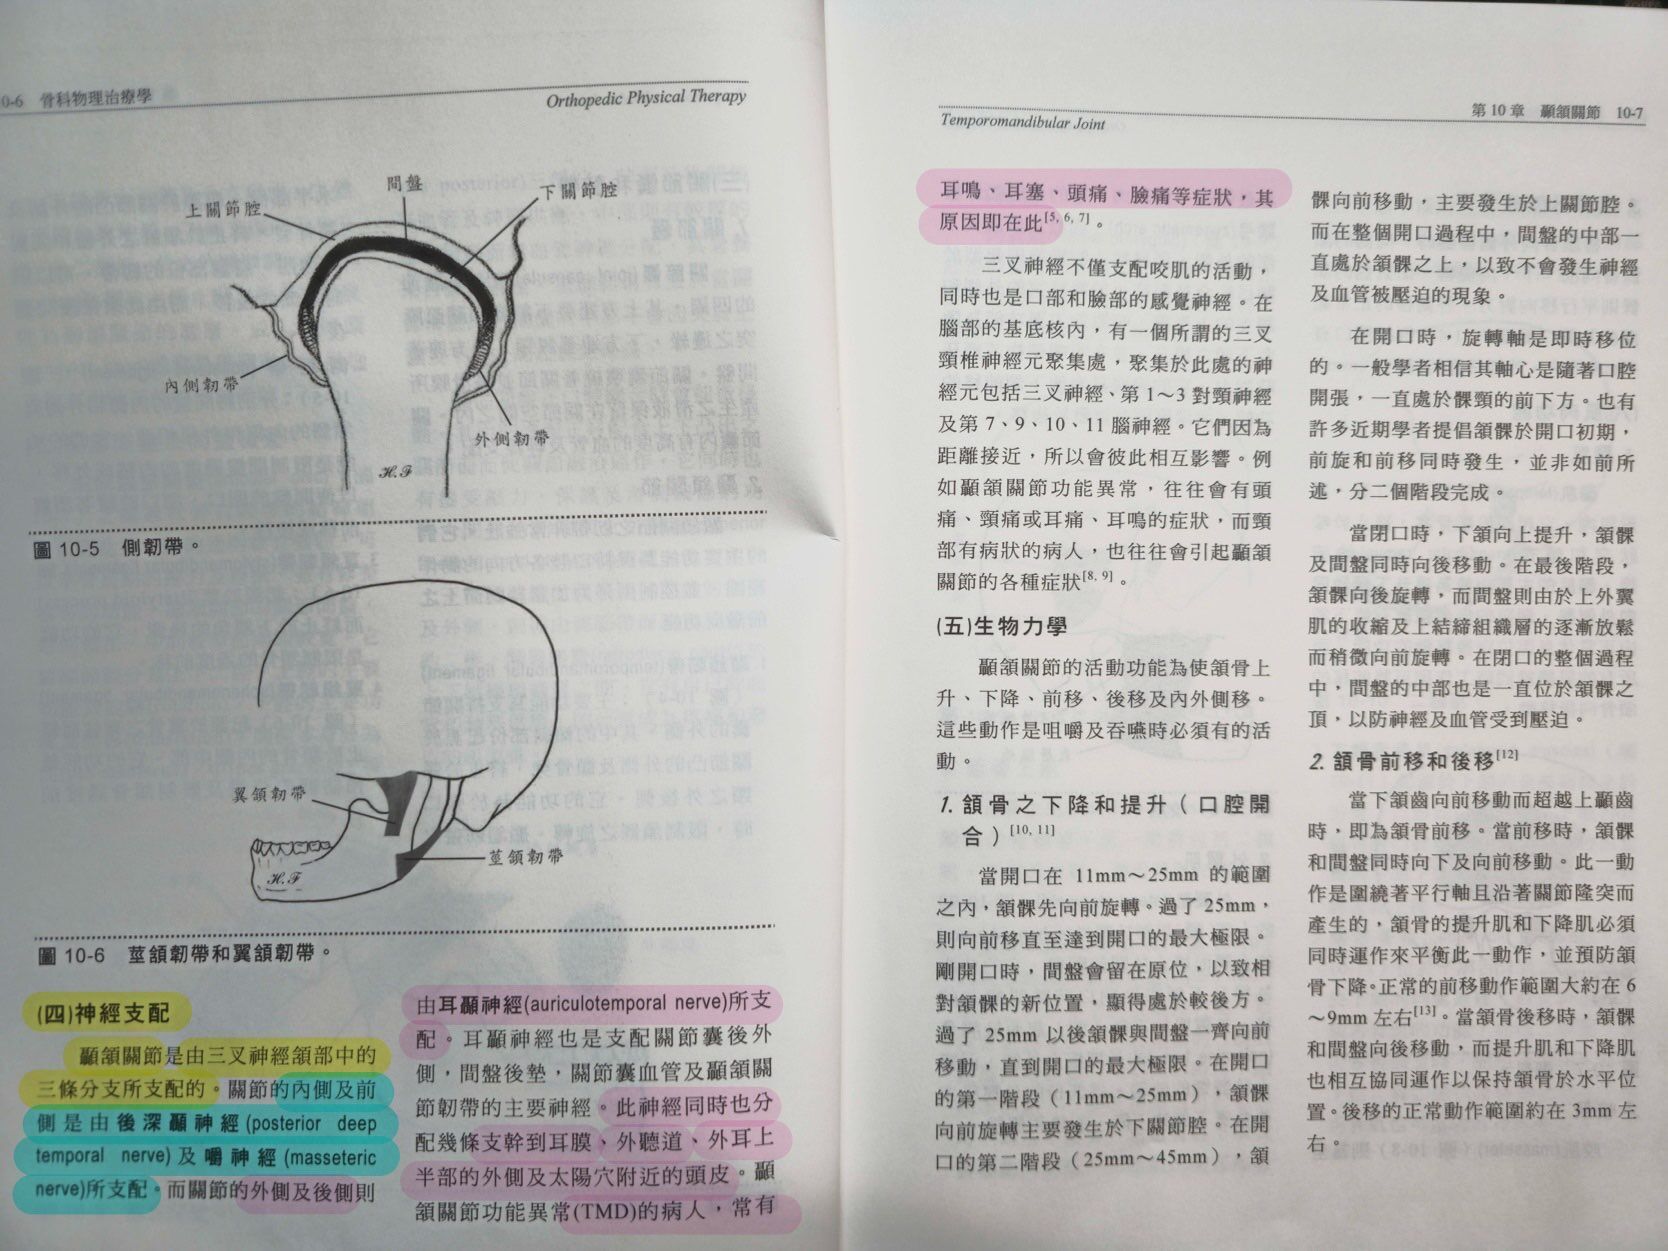 0-6 骨科物理治療學
Orthopedic Physical Therapy
間盤
上關節腔
下關節腔
內側韌帶
外側韌帶
H.F
圖 10-5 側韌帶。
翼頜韌帶
莖頜韌帶
H.F
圖 10-6 莖頜韌帶和翼頜韌帶。
(四)神經支配
顳頜關節是由三叉神經頷部中的
三條分支所支配的。關節的內側及前
側是由後深顳神經(posterior deep
temporal nerve)及嚼神經(masseteric
nerve)所支配。而關節的外側及後側則
由耳顳神經(auriculotemporal nerve)所支
配。耳顳神經也是支配關節囊後外
側，間盤後墊，關節囊血管及顳頜關
節韌帶的主要神經。此神經同時也分
配幾條支幹到耳膜、外聽道、外耳上
半部的外側及太陽穴附近的頭皮。顳
頜關節功能異常(TMD)的病人，常有
Temporomandibular Joint
第 10 章 顳頜關節 10-7
耳鳴、耳塞、頭痛、臉痛等症狀，其
原因即在此[5, 6, 7]。
三叉神經不僅支配咬肌的活動，
同時也是口部和臉部的感覺神經。在
腦部的基底核內，有一個所謂的三叉
頸椎神經元聚集處，聚集於此處的神
經元包括三叉神經、第 1～3 對頸神經
及第 7、9、10、11 腦神經。它們因為
距離接近，所以會彼此相互影響。例
如顳頜關節功能異常，往往會有頭
痛、頸痛或耳痛、耳鳴的症狀，而頸
部有病狀的病人，也往往會引起顳頜
關節的各種症狀[8, 9]。
(五)生物力學
顳頜關節的活動功能為使頜骨上
升、下降、前移、後移及內外側移。
這些動作是咀嚼及吞嚥時必須有的活
動。
1. 頜骨之下降和提升（口腔開
合）[10, 11]
當開口在 11mm～25mm 的範圍
之內，頜髁先向前旋轉。過了 25mm，
則向前移直至達到開口的最大極限。
剛開口時，間盤會留在原位，以致相
對頜髁的新位置，顯得處於較後方。
過了 25mm 以後頜髁與間盤一齊向前
移動，直到開口的最大極限。在開口
的第一階段（11mm～25mm），頜髁
向前旋轉主要發生於下關節腔。在開
口的第二階段（25mm～45mm），頜
髁向前移動，主要發生於上關節腔。
而在整個開口過程中，間盤的中部一
直處於頜髁之上，以致不會發生神經
及血管被壓迫的現象。
在開口時，旋轉軸是即時移位
的。一般學者相信其軸心是隨著口腔
開張，一直處於髁頸的前下方。也有
許多近期學者提倡頜髁於開口初期，
前旋和前移同時發生，並非如前所
述，分二個階段完成。
當閉口時，下頜向上提升，頜髁
及間盤同時向後移動。在最後階段，
頜髁向後旋轉，而間盤則由於上外翼
肌的收縮及上結締組織層的逐漸放鬆
而稍微向前旋轉。在閉口的整個過程
中，間盤的中部也是一直位於頜髁之
頂，以防神經及血管受到壓迫。
2. 頜骨前移和後移[12]
當下頜齒向前移動而超越上顳齒
時，即為頜骨前移。當前移時，頜髁
和間盤同時向下及向前移動。此一動
作是圍繞著平行軸且沿著關節隆突而
產生的，頜骨的提升肌和下降肌必須
同時運作來平衡此一動作，並預防頜
骨下降。正常的前移動作範圍大約在 6
～9mm 左右[13]。當頜骨後移時，頜髁
和間盤向後移動，而提升肌和下降肌
也相互協同運作以保持頜骨於水平位
置。後移的正常動作範圍約在 3mm 左
右。